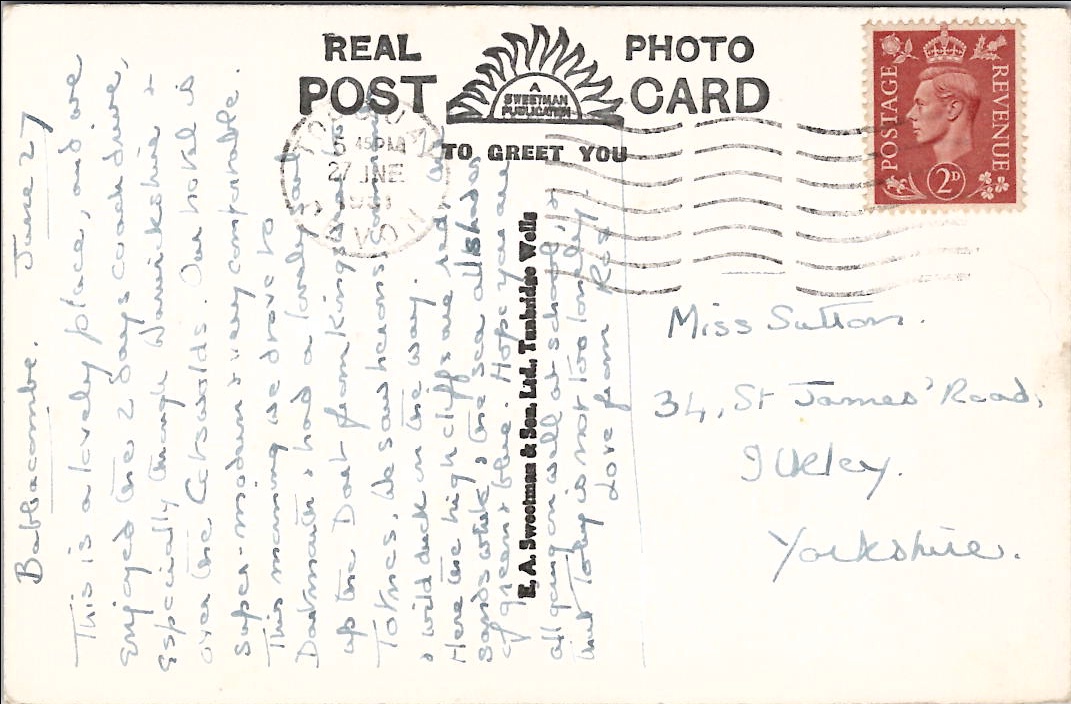 REAL PHOTO
POST CARD
A
SWEETMAN
PUBLICATION
TO GREET YOU
POSTAGE REVENUE
2D
TORQUAY
5 45PM
27 JNE
1951
DEVON
E. A. Sweetman & Son, Ltd., Tunbridge Wells
Babbacombe. June 27
This is a lovely place, and we
enjoyed the 2 days coach drive,
especially through Warwickshire &
over the Cotswolds. Our hotel is
super-modern & very comfortable.
This morning we drove to
Dartmouth & had a lovely sail
up the Dart from Kingswear to
Totnes. We saw herons, swans
& wild duck on the way.
Here the high cliffs are red,
sands white, & the sea all shades
of green & blue. Hope you are
all going on well at school, &
that Toby is not too lonely.
Love from
Miss Sutton.
34, St James' Road,
Ilkley.
Yorkshire.